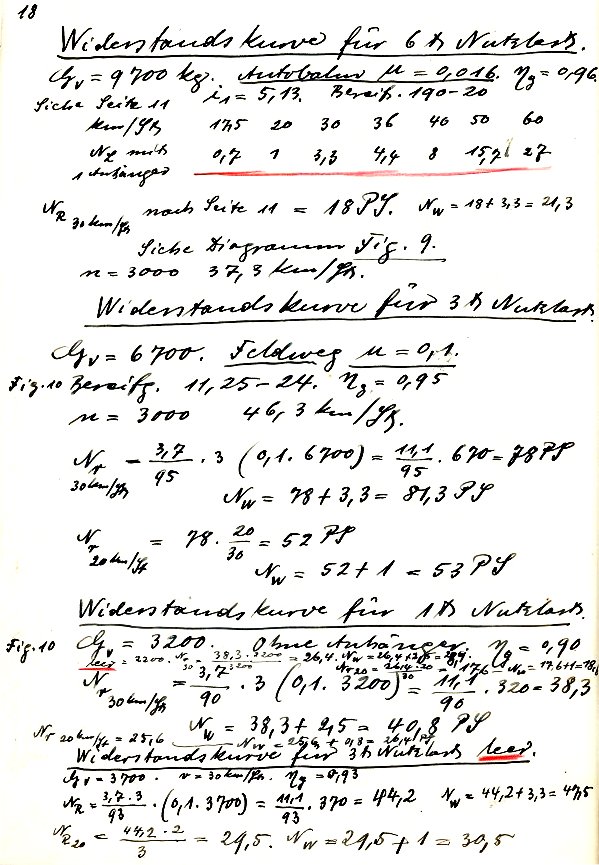 18
Widerstandskurve für 6 to Nutzlast.
Gv = 9700 kg. Autobahn μ = 0,016. ηg = 0,96
Siehe Seite 11 i1 = 5,13. Bereif. 190-20
km/St 17,5 20 30 36 40 50 60
NL mit 0,7 1 3,3 4,4 8 15,7 27
1 Anhänger
NR 30 km/St nach Seite 11 = 18 PS. Nw = 18 + 3,3 = 21,3
Siehe Diagramm Fig. 9.
n = 3000 37,3 km/St.
Widerstandskurve für 3 to Nutzlast.
Gv = 6700. Feldweg μ = 0,1.
Fig. 10 Bereifg. 11,25-24. ηg = 0,95
n = 3000 46,3 km/St.
Nr 30 km/St = 3,7/95 · 3 (0,1 · 6700) = 11,1/95 · 670 = 78 PS
Nw = 78 + 3,3 = 81,3 PS
Nr 20 km/St = 78 · 20/30 = 52 PS
Nw = 52 + 1 = 53 PS
Widerstandskurve für 1 to Nutzlast.
Fig. 10 Gv = 3200. Ohne Anhänger. ηg = 0,90
leer = 2200. Nr 30 = 38,3 · 2200/3200 = 26,4. Nw = 26,4 +
Nr 20 = 26,4 · 20/30 = 17,6 = 17,6 + 1 = 18,
Nr 30 km/St = 3,7/90 · 3 (0,1 · 3200) = 11,1/90 · 320 = 38,3
Nw = 38,3 + 2,5 = 40,8 PS
Nr 20 km/St = 25,6 Nw = 25,6 + 0,8 = 26,4 PS
Widerstandskurve für 3 to Nutzlast leer.
Gv = 3700. v = 30 km/St. ηg = 0,93
NR = 3,7 · 3/93 · (0,1 · 3700) = 11,1/93 · 370 = 44,2 Nw = 44,2 + 3,3 = 47,5
NR 20 = 44,2 · 2/3 = 29,5. Nw = 29,5 + 1 = 30,5